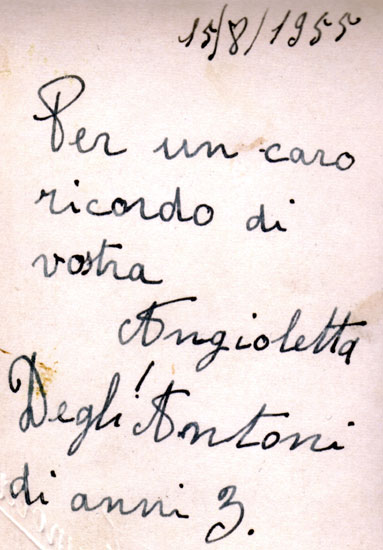 15/8/1955
Per un caro
ricordo di
vostra
Angioletta
Degl'Antoni
di anni 3.